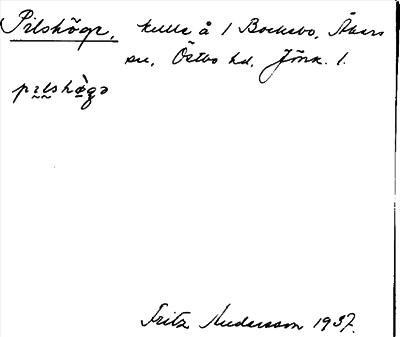 Pilshöge, kulle å 1 Bocksbo, Åkers
sn, Östbo hd, Jönk. l.
pɪlshø̀gə
Fritz Andersson 1937.